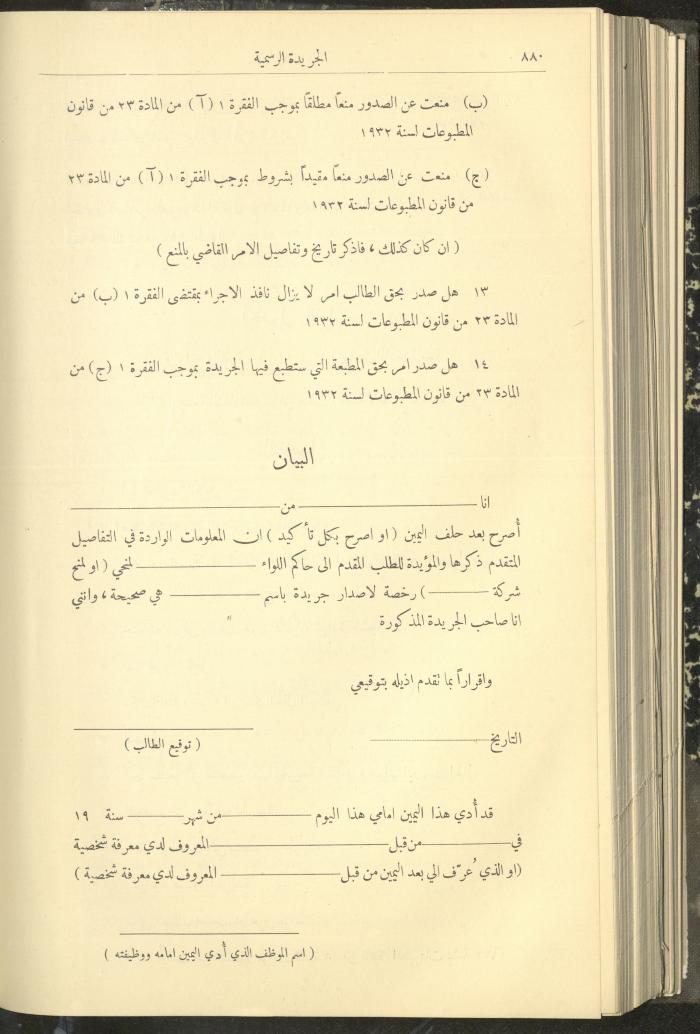 ٨٨٠ الجريدة الرسمية
(ب) منعت عن الصدور منعاً مطلقاً بموجب الفقرة ١ (آ) من المادة ٢٣ من قانون
المطبوعات لسنة ١٩٣٢
(ج) منعت عن الصدور منعاً مقيداً بشروط بموجب الفقرة ١ (آ) من المادة ٢٣
من قانون المطبوعات لسنة ١٩٣٢
( ان كان كذلك ، فاذكر تاريخ وتفاصيل الامر القاضي بالمنع )
١٣ هل صدر بحق الطالب امر لا يزال نافذ الاجراء بمقتضى الفقرة ١ (ب) من
المادة ٢٣ من قانون المطبوعات لسنة ١٩٣٢
١٤ هل صدر امر بحق المطبعة التي ستطبع فيها الجريدة بموجب الفقرة ١ (ج) من
المادة ٢٣ من قانون المطبوعات لسنة ١٩٣٢
البيان
انا ــــــــ من ــــــــ
أصرح بعد حلف اليمين ( او اصرح بكل تأكيد ) ان المعلومات الواردة في التفاصيل
المتقدم ذكرها والمؤيدة للطلب المقدم الى حاكم اللواء ــــــــ لمنحي ( او لمنح
شركة ــــــــ ) رخصة لاصدار جريدة باسم ــــــــ هي صحيحة ، وانني
انا صاحب الجريدة المذكورة
واقراراً بما تقدم اذيله بتوقيعي
التاريخ ــــــــ
( توقيع الطالب )
قد أُدي هذا اليمين امامي هذا اليوم ــــــــ من شهر ــــــــ سنة ١٩
في ــــــــ من قبل ــــــــ المعروف لدي معرفة شخصية
(او الذي عُرّف الي بعد اليمين من قبل ــــــــ المعروف لدي معرفة شخصية )
( اسم الموظف الذي أُدي اليمين امامه ووظيفته )